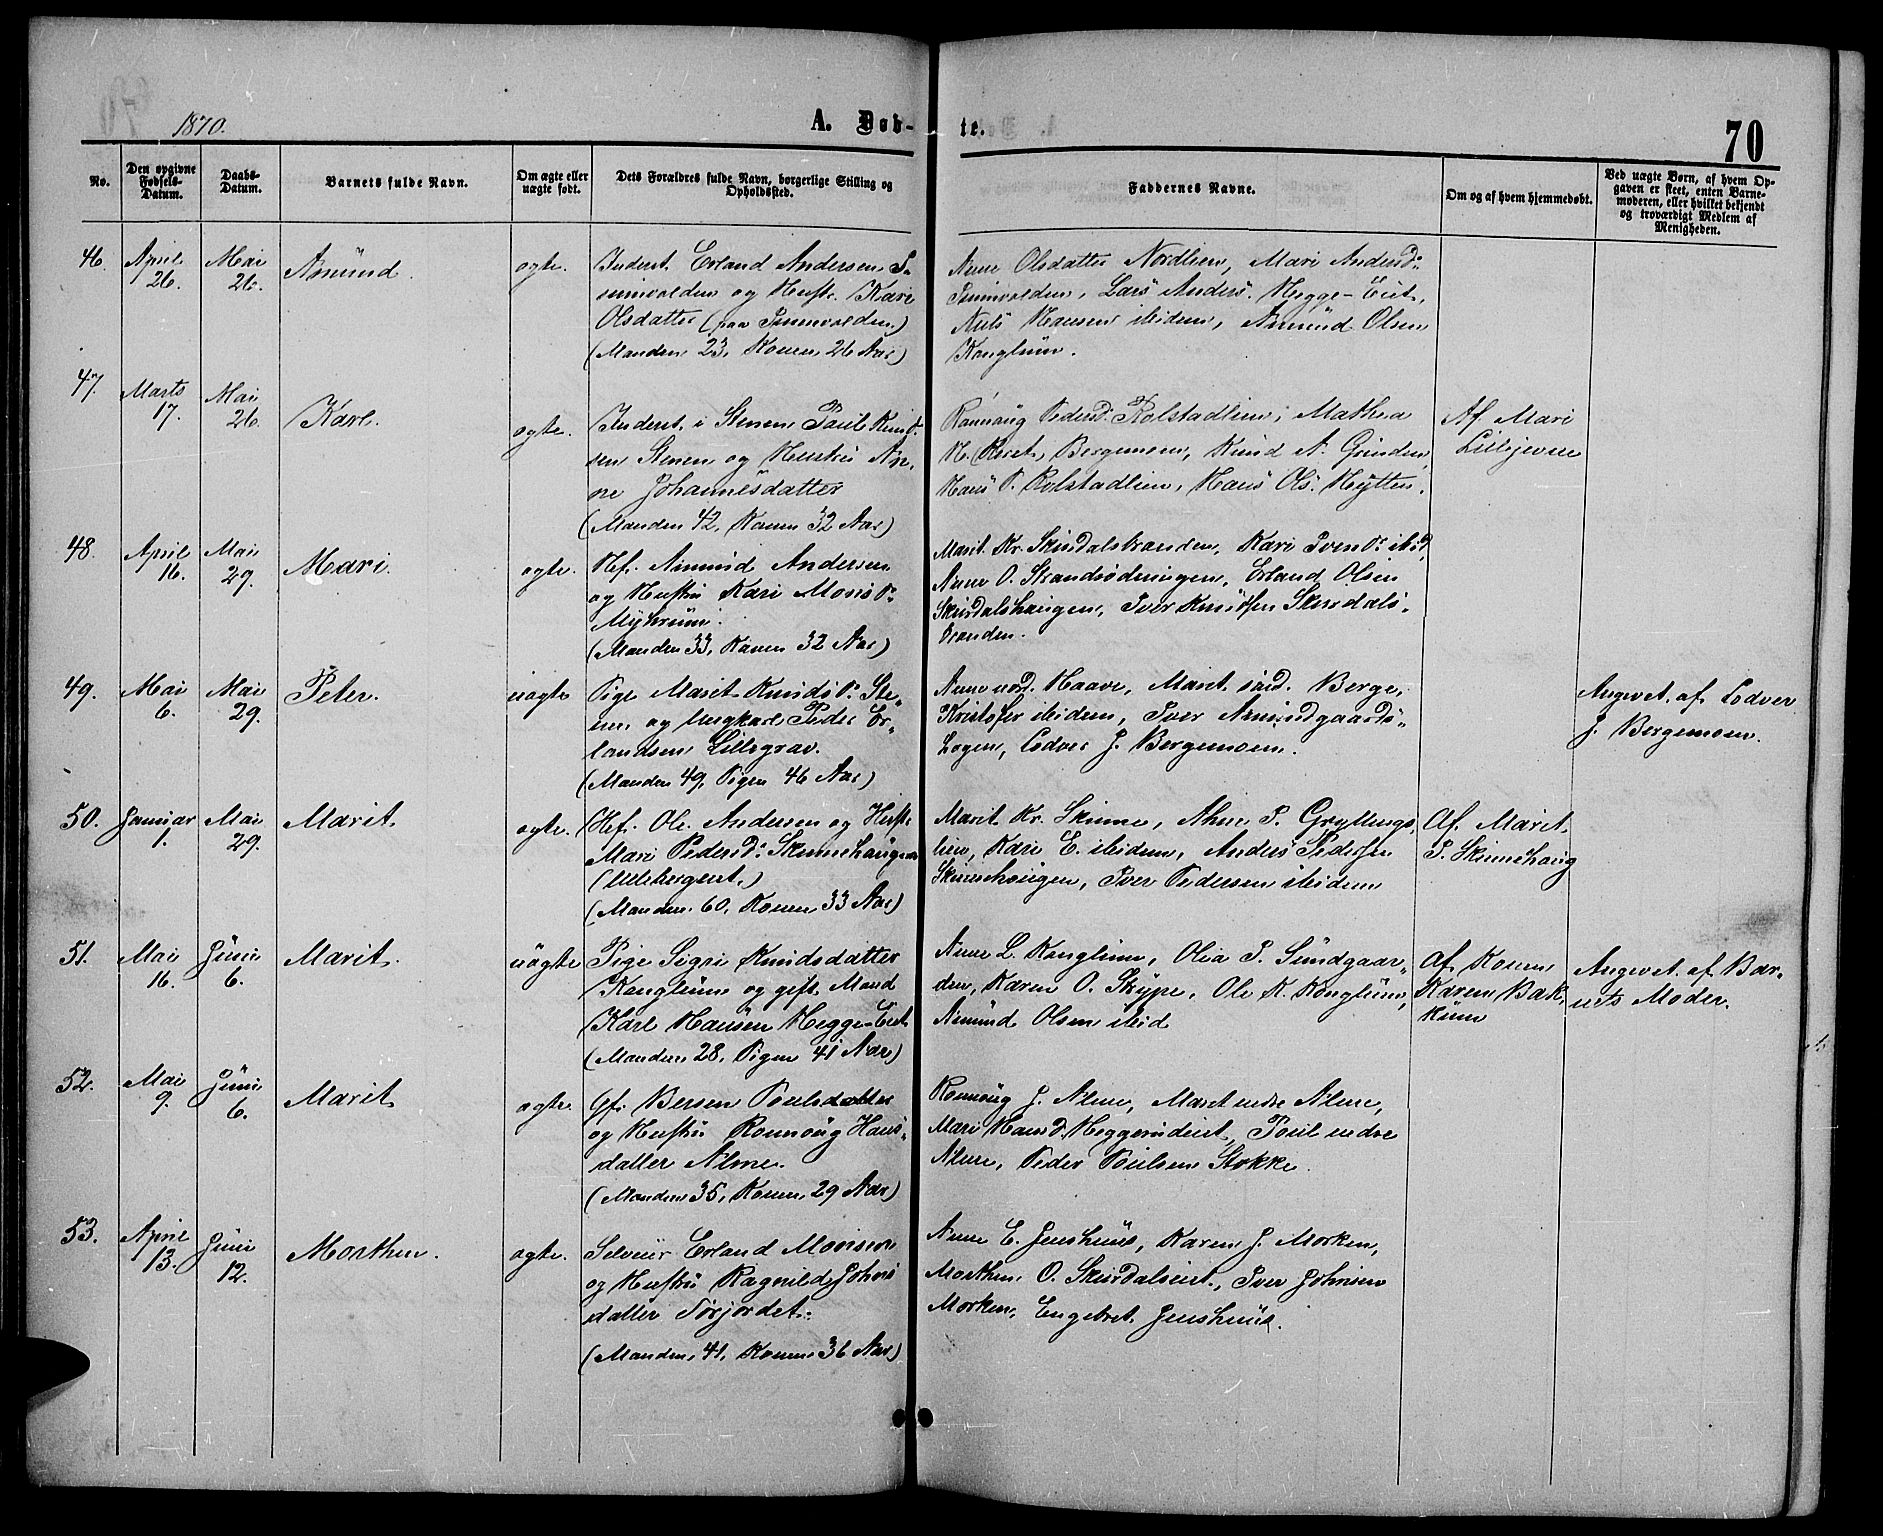 1870.
A. Døb-
te.
70
No.
Den opgivne Fødsels-Datum.
Daabs-Datum.
Barnets fulde Navn.
Om ægte eller uægte født.
Dets Forældres fulde Navn, borgerlige Stilling og Opholdssted.
Faddernes Navne.
Om og af hvem hjemmedøbt.
Ved uægte Børn, af hvem Opgaven er skeet, enten Barnemoderen, eller hvilket bekjendt og troværdigt Medlem af Menigheden.
46. April 26. Mai 26. Amünd. ægte.
Inderst. Erland Andersen
og Hustr. Kari
Olsdatter
(Manden 23, Konen 26 Aar)
Anne Olsdatter Nordlien, Mari Andersd.
Lars Anders. Hegge-Eiet,
Niels Hansen ibidem, Amünd Olsen
Konglüm.
47. Marts 17. Mai 26. Karl. ægte.
Inderst. i Stenen Paül Knüd-
sen Stenen og Hustrü An-
ne Johannesdatter
(Manden 42, Konen 32 Aar)
Rannaüg Pedersd. Rolstadlien, Mathea
H. Bergemoen, Knüd A. Grinden,
Hans P. Rolstadlien, Hans Ols. Hytten.
Af Mari
48. April 16. Mai 29. Mari. ægte.
Hf. Amünd Andersen
og Hustrü Kari
Myhrüm.
(Manden 33, Konen 32 Aar)
Marit Kr. Skurdalstranden, Kari ibid,
Anne O. Strandsødningen, Erland Olsen
Skurdalshaugen, Iver Knüdsen Skurdals-
tranden.
49. Mai 6. Mai 29. Peter. üægte
Pige Marit Knüdsd. Ste-
nen og Ungkarl Peder Er-
landsen Lillegrav.
(Manden 49, Pigen 46 Aar)
Anne nord. Haave, Marit sørd. Berge,
Kristofer ibidem, Iver Amündgaards-
hagen, Lodver J. Bergemoen.
Angivet af Lodver
J. Bergemoen.
50. Januar 1. Mai 29. Marit ægte.
Hf. Ole Andersen og Hustr.
Mari Pedersd. Skinnehaugen
(Ulebergeiet.)
(Manden 60, Konen 33 Aar)
Marit Kr. Skinne, Anne P. Gryllings-
lien, Kari E. ibidem, Anders Pedersen
Skinnehaugen, Iver Pedersen ibidem
Af Marit
P. Skinnehaug
51. Mai 16. Jüni 6. Marit. üægte
Pige Sigri Knüdsdatter
Konglüm og gift Mand
Karl Hansen Hegge-Eiet
(Manden 28, Pigen 41 Aar)
Anne L. Konglüm, Olia P. Sündgaar-
den, Karen O. Skype, Ole K. Konglüm,
Amünd Olsen ibid
Af Konen
Karen Bak-
küm
Angivet af Bar-
nets Moder.
52. Mai 9. Jüni 6. Marit ægte.
Gf. Bersven Poülsdatter
og Hustrü Ronnoüg Hans-
datter Alme.
(Manden 35, Konen 29 Aar)
Ronnoüg J. Alme, Marit nedre Alme,
Mari Hansd. Heggerüdeiet, Poül nedre
Alme, Peder Poülsen Stokke.
53. April 13. Jüni 12. Morthen. ægte.
Selveier Erland Monsen
og Hustrü Ragnilde Johns-
datter Tørjordet.
(Manden 41, Konen 36 Aar)
Anne E. Jenshüüs, Karen J. Morken,
Morthen O. Skürdalseiet, Iver Johnsen
Morken, Engebret Jenshüüs.